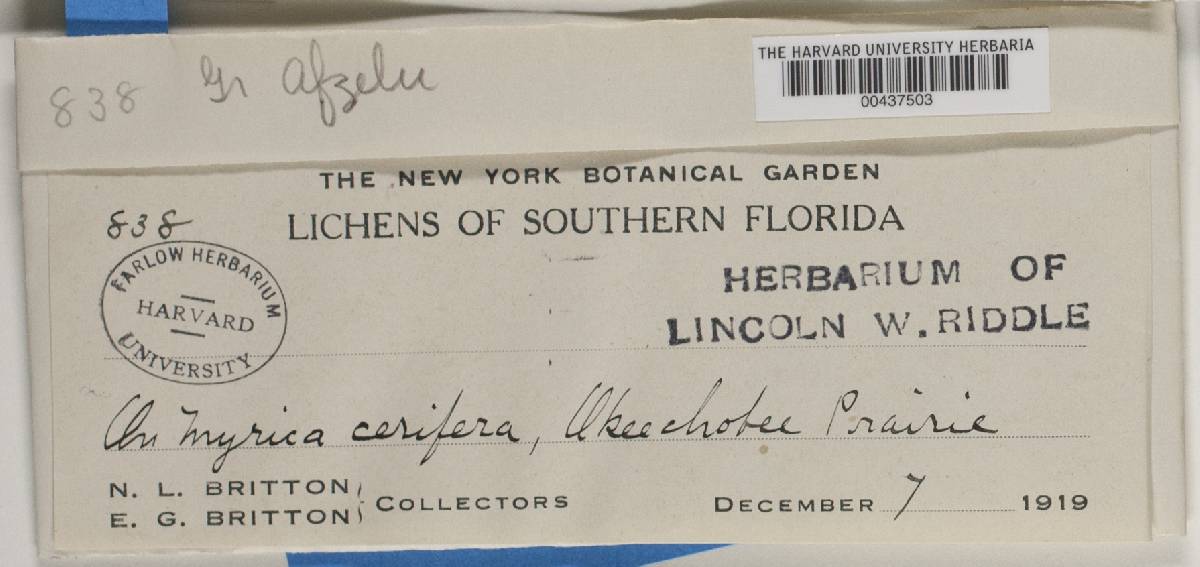 838 Gr Afzelii
THE HARVARD UNIVERSITY HERBARIA
00437503
THE NEW YORK BOTANICAL GARDEN
838
LICHENS OF SOUTHERN FLORIDA
FARLOW HERBARIUM
HARVARD
UNIVERSITY
HERBARIUM OF
LINCOLN W. RIDDLE
On Myrica cerifera, Okeechobee Prairie
N. L. BRITTON
E. G. BRITTON
COLLECTORS
DECEMBER 7 1919